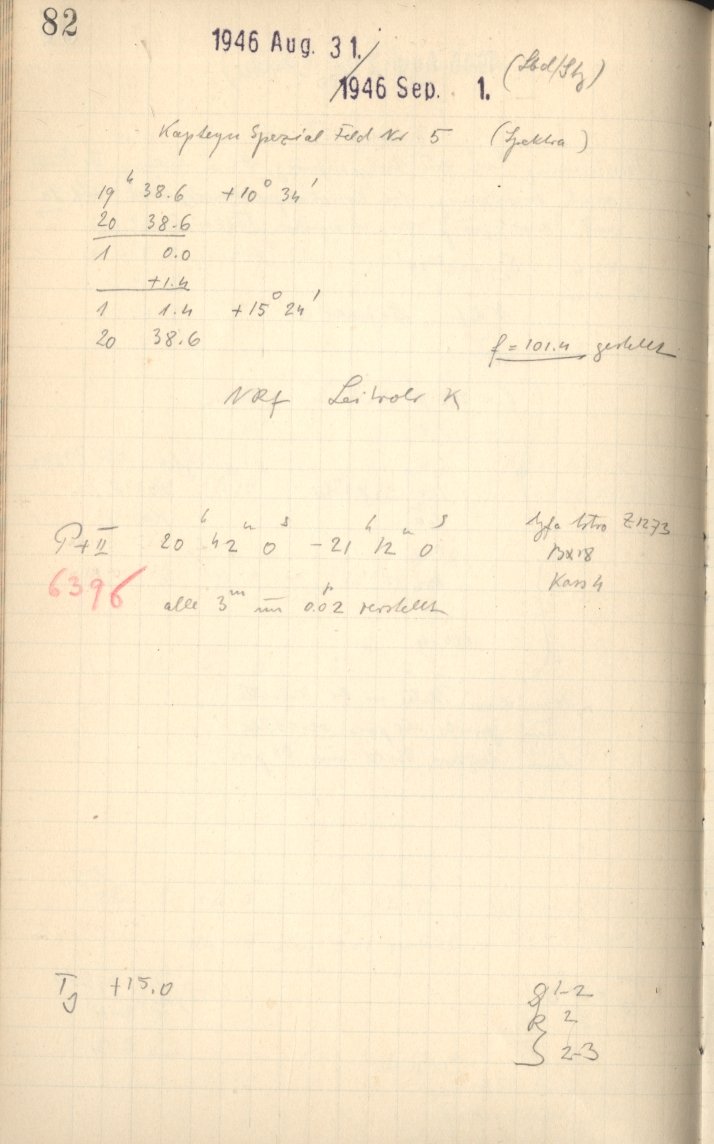 82
1946 Aug. 31./
1946 Sep. 1.
Kapteyn Spezial Feld Nr 5 (Spektra)
19ʰ 38.6 +10° 34'
20 38.6
1 0.0
+1.4
1 1.4 +15° 24'
20 38.6
f = 101.4 gestellt
NRf Leitrohr K
P+II 20ʰ 42ᵐ 0ˢ -21ʰ 12ᵐ 0ˢ Agfa Astro Z1273
BX18
Kass 4
6396
alle 3ᵐ um 0.02 verstellt
T +15.0
1-2
R 2
S 2-3